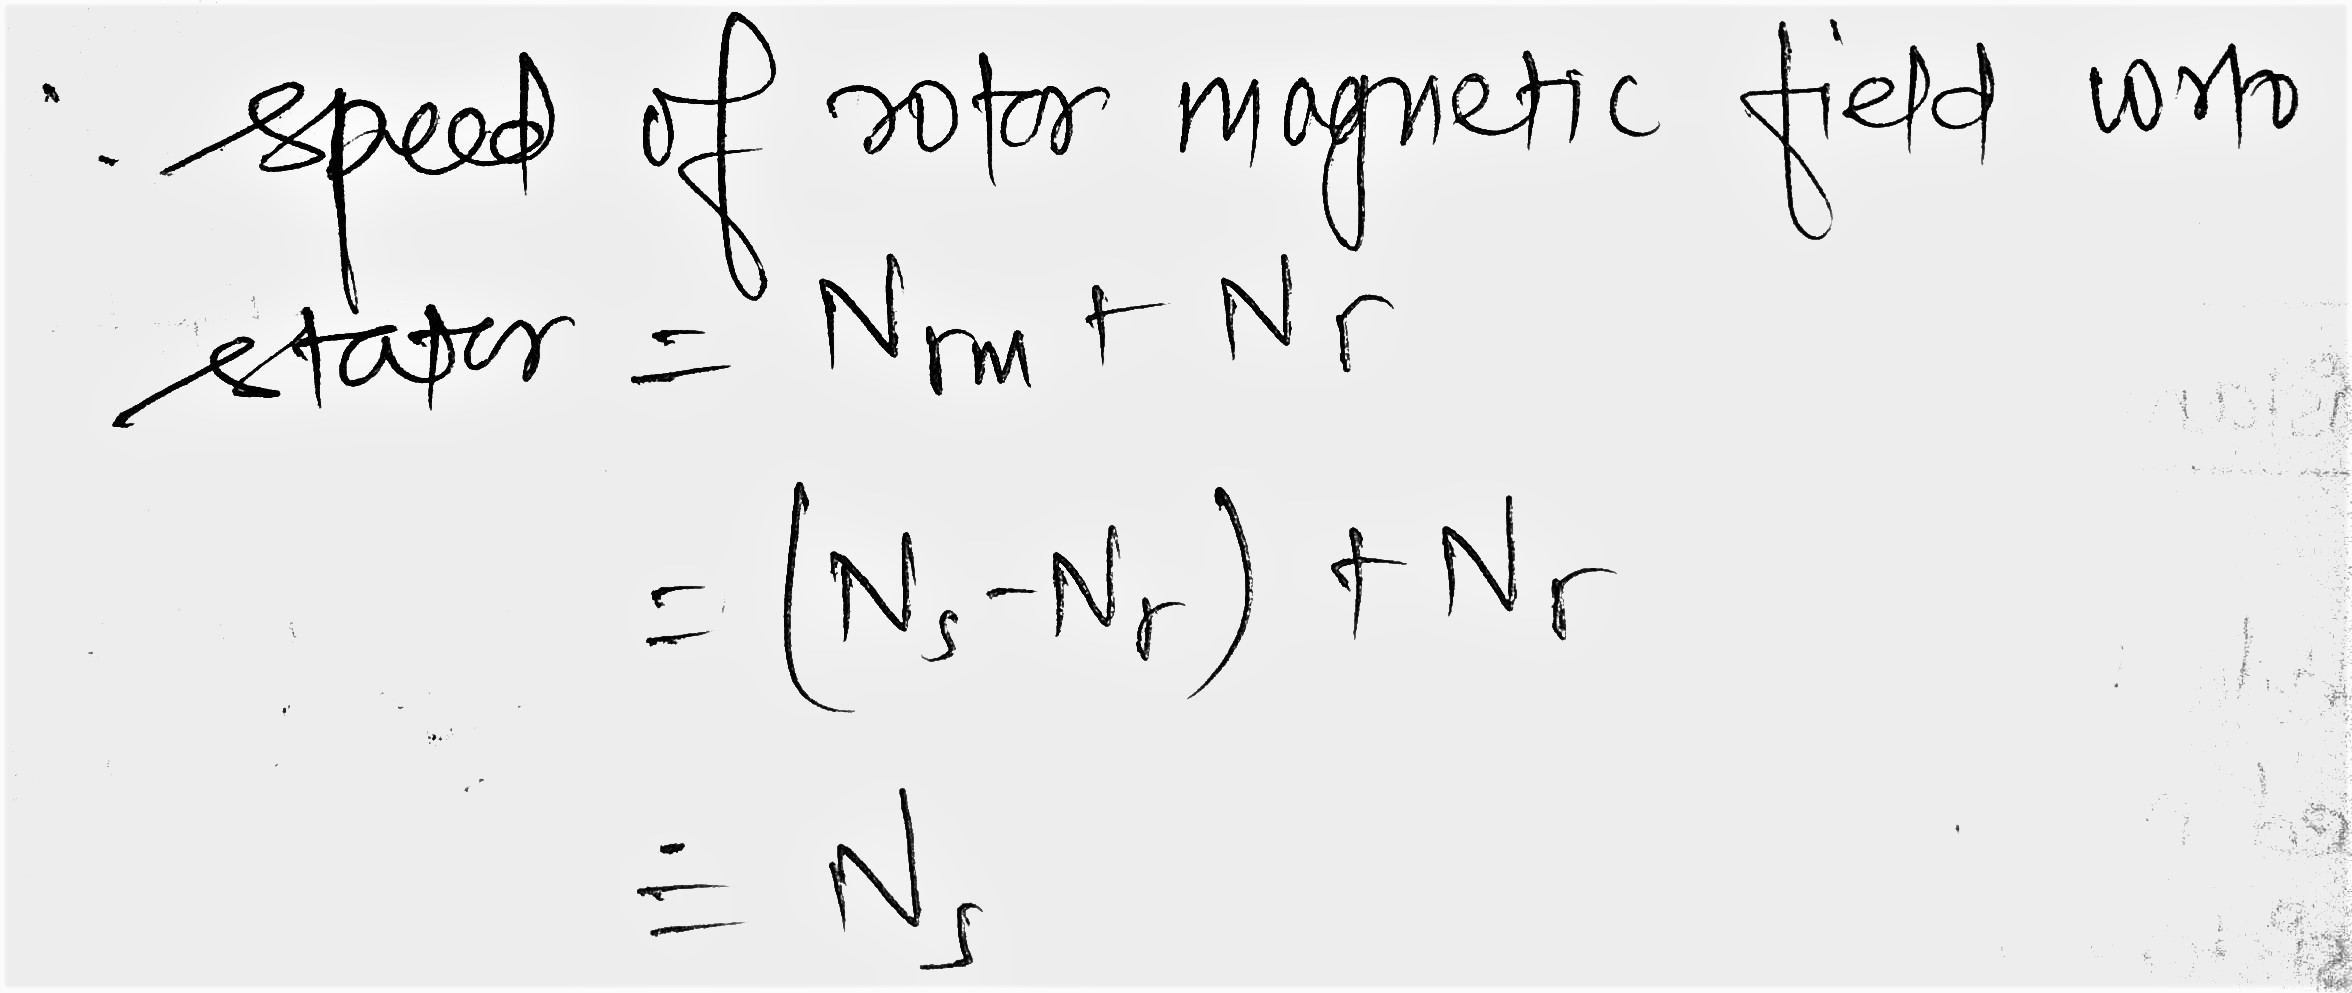 ∴ speed of rotor magnetic field wrto
stator = Nrm + Nr
= (Ns - Nr) + Nr
= Ns